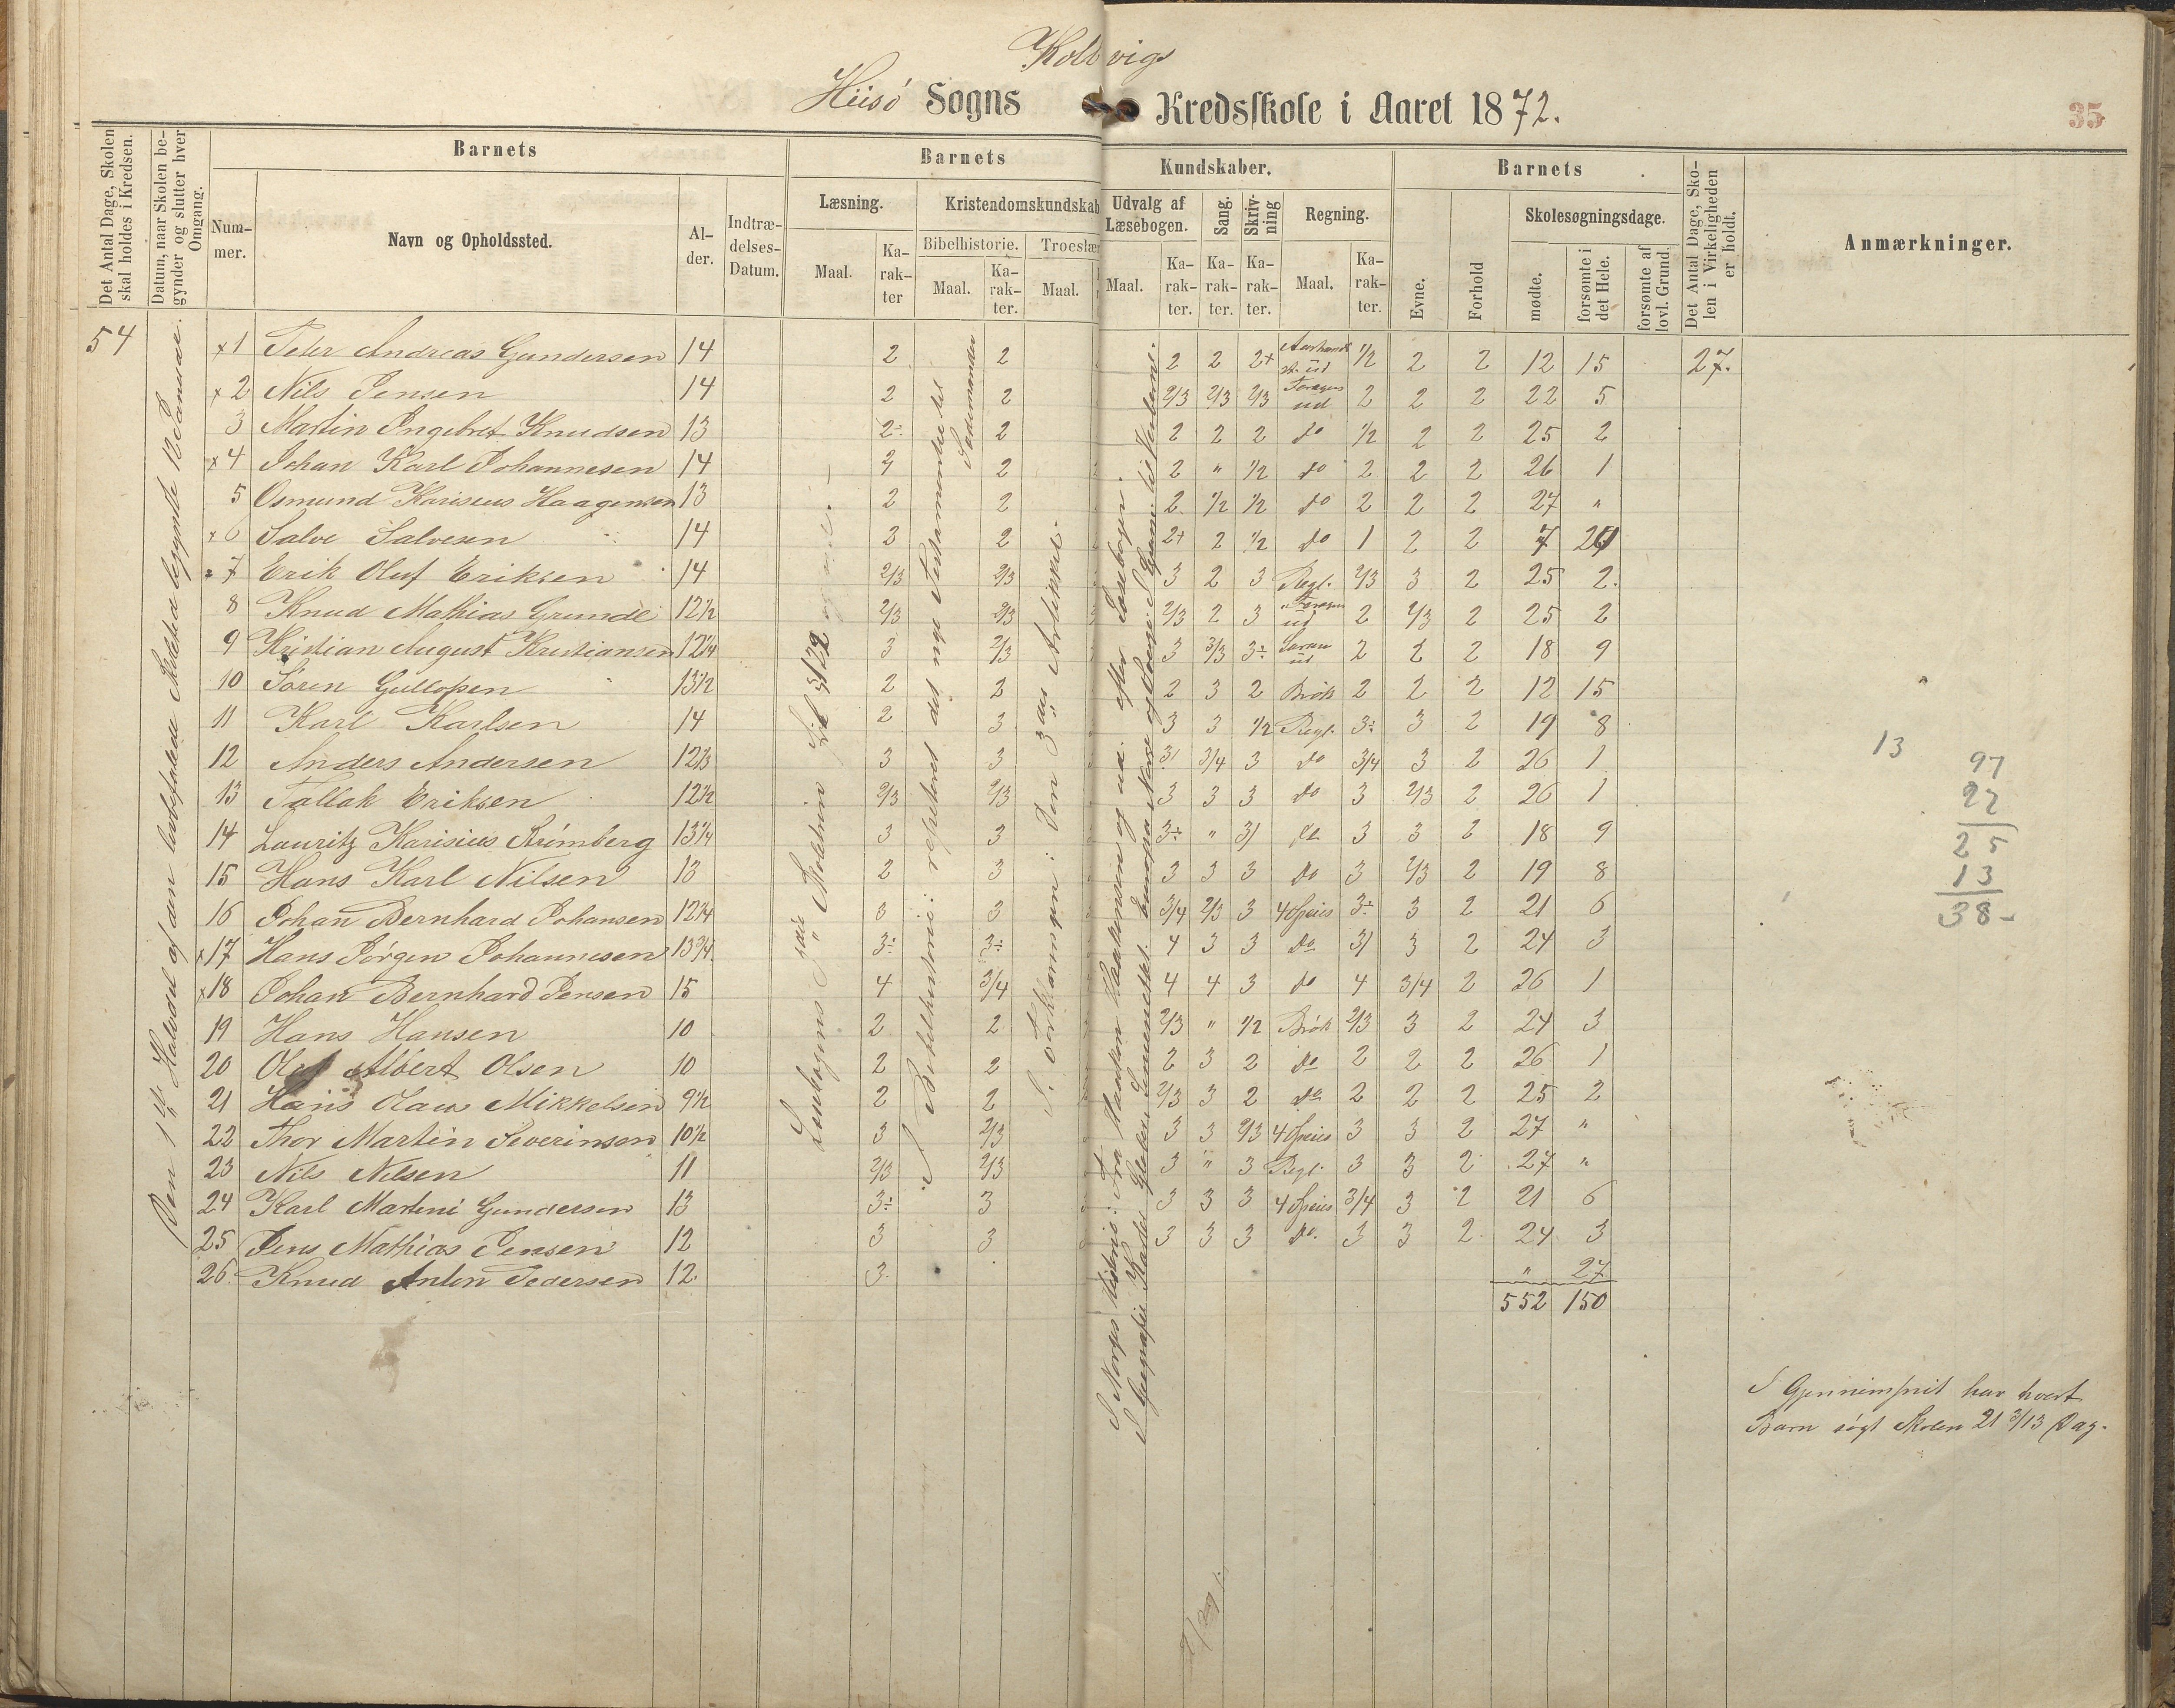 Kolbvigs
Hiisö Sogns Kredsskole i Aaret 1872.
35
Det Antal Dage, Skolen skal holdes i Kredsen.
Datum, naar Skolen begynder og slutter hver Omgang.
Barnets
Nummer.
Navn og Opholdssted.
Alder.
Indtrædelses-Datum.
Barnets Kundskaber.
Læsning.
Maal.
Karakter
Kristendomskundskab
Bibelhistorie.
Maal.
Karakter.
Troeslær
Maal.
Udvalg af Læsebogen.
Maal.
Karakter.
Sang.
Karakter.
Skrivning
Karakter.
Regning.
Maal.
Karakter.
Barnets
Evne.
Forhold
Skolesøgningsdage.
mødte.
forsømte i det Hele.
forsømte af lovl. Grund.
Det Antal Dage, Skolen i Virkeligheden er holdt.
Anmærkninger.
54
27.
x1 Peter Andreas Gundersen 14 2 2 2 2 2+ ud 1/2 2 2 12 15
x2 Nils Jensen 14 2 2 2/3 2/3 2/3 ud 2 2 2 22 5
3 Martin Ingebret Knudsen 13 2÷ 2 2 2 2 do 1/2 2 2 25 2
x4 Johan Karl Johannesen 14 2 2 2 " 1/2 do 2 2 2 26 1
5 Osmund Karisius Haagensen 13 2 2 2 1/2 1/2 do 2 2 2 27 "
x6 Salve Salvesen 14 3 2 2+ 2 1/2 do 1 2 2 7 20
x7 Erik Oluf Eriksen 14 2/3 2/3 3 2 3 Regl. 2/3 3 2 25 2.
8 Knud Mathias Grunde 12 1/2 2/3 2/3 2/3 2 3 ud 2 2/3 2 25 2
9 Kristian August Kristiansen 12 1/4 3 2/3 3 3/3 3÷ ud 2 2 2 18 9
10 Søren Gullofsen 13 1/2 2 2 2 3 2 Brök 2 2 2 12 15
11 Karl Karlsen 14 2 3 3 3 1/2 Regl. 3÷ 3 2 19 8
12 Anders Andersen 12 2/3 3 3 3/ 3/4 3 do 3/4 3 2 26 1
13 Tallak Eriksen 12 1/2 2/3 2/3 3 3 3 do 3 2/3 2 26 1
14 Lauritz Karisius Strömberg 13 1/4 3 3 3÷ " 3/ do 3 3 2 18 9
15 Hans Karl Nilsen 13 2 3 3 3 3 do 3 2/3 2 19 8
16 Johan Bernhard Johansen 12 3/4 3 3 3/4 2/3 3 4 Speies 3÷ 3 2 21 6
x17 Hans Jörgen Johannesen 13 3/4 3÷ 3÷ 4 3 3 do 3/ 3 2 24 3
x18 Johan Bernhard Jensen 15 4 3/4 4 4 3 do 4 3/4 2 26 1
19 Hans Hansen 10 2 2 2/3 " 1/2 Brök 2/3 3 2 24 3
20 Oluf Albert Olsen 10 2 2 2 3 2 do 2 2 2 26 1
21 Hans Olaus Mikkelsen 9 1/2 2 2 2/3 3 2 do 2 2 2 25 2
22 Thor Martin Severinsen 10 1/2 3 2/3 3 3 2/3 4 Speies 3 3 2 27 "
23 Nils Nilsen 11 2/3 2/3 3 " 3 Regl. 3 3 2 27 "
24 Karl Martini Gundersen 13 3÷ 3 3 3 3 4 Speies 3/4 3 2 21 6
25 Jens Mathias Jensen 12 3 3 3 3 3 do. 3 3 2 24 3
26. Knud Anton Pedersen 12. 3. " 27
552 150
Den 1ste Halvdel af den lovbefalede Skoletid begyndte 12 Januar.
Læsebogens 3die Skoletrin
I Bibelhistorie: repeteret det nye Testamentet til
I Forklaringen: Den 3die Artikkel.
I Norges Historie: Fra Haakon Haakonsen og ud. efter Læsebogen.
13
97
27
25
13
38-
I Gjennemsnit har hvert
Barn søgt Skolen 21 3/13 Dag.